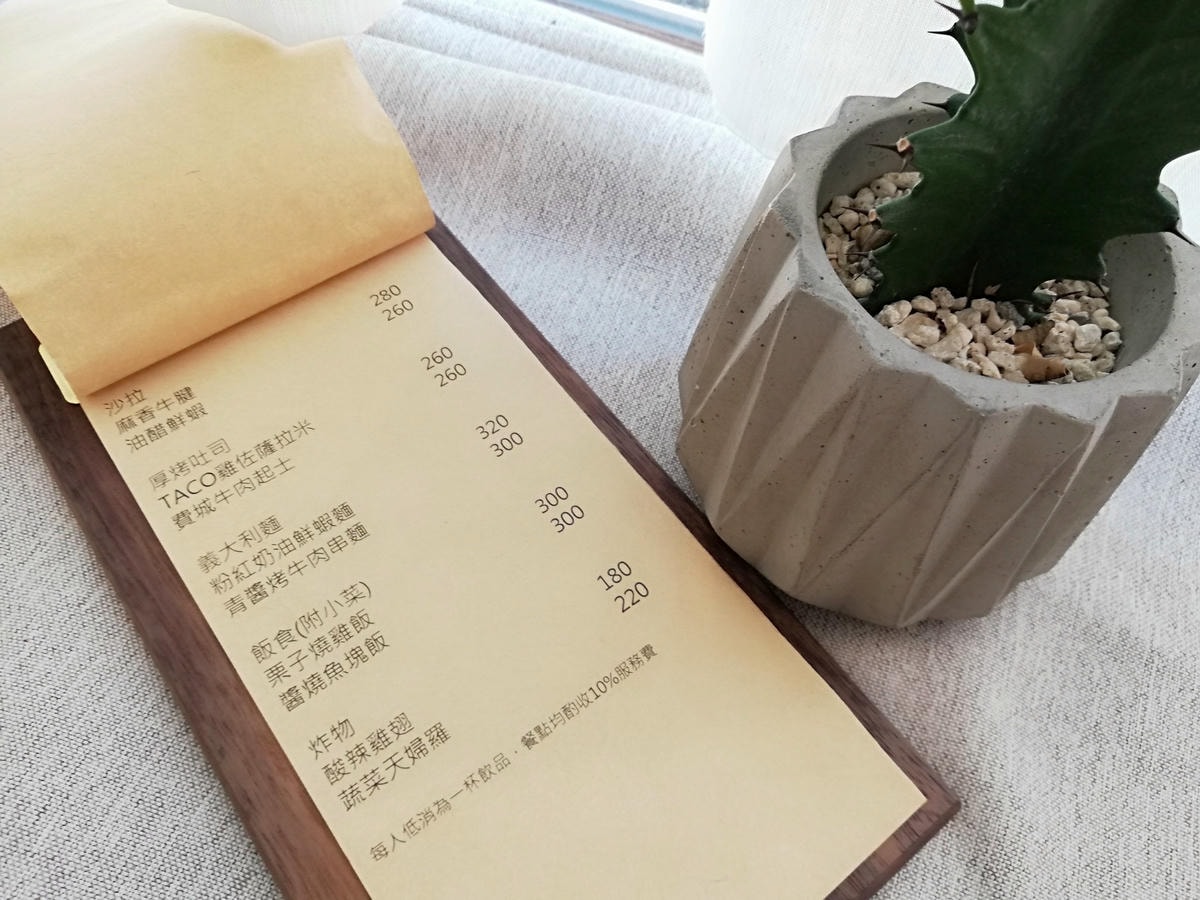 沙拉
麻香牛腱 280
油醋鮮蝦 260
厚烤吐司
TACO雞佐薩拉米 260
費城牛肉起士 260
義大利麵
粉紅奶油鮮蝦麵 320
青醬烤牛肉串麵 300
飯食(附小菜)
栗子燒雞飯 300
醬燒魚塊飯 300
炸物
酸辣雞翅 180
蔬菜天婦羅 220
每人低消為一杯飲品．餐點均酌收10%服務費